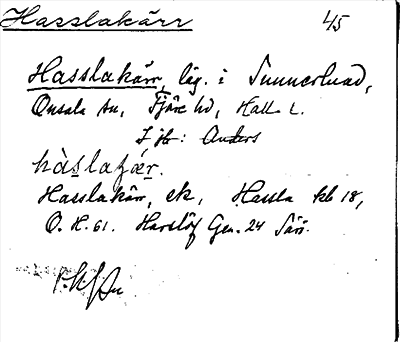 Hasslakärr 45
Hasslakärr, läg. i Tunnerlund,
Onsala sn, Fjäre hd, Hall. L.
I H: Anders
hàslaɟæ̀r.
Hasslakärr, ek, Hassla kb 18,
O. H. 61. Gen. 24